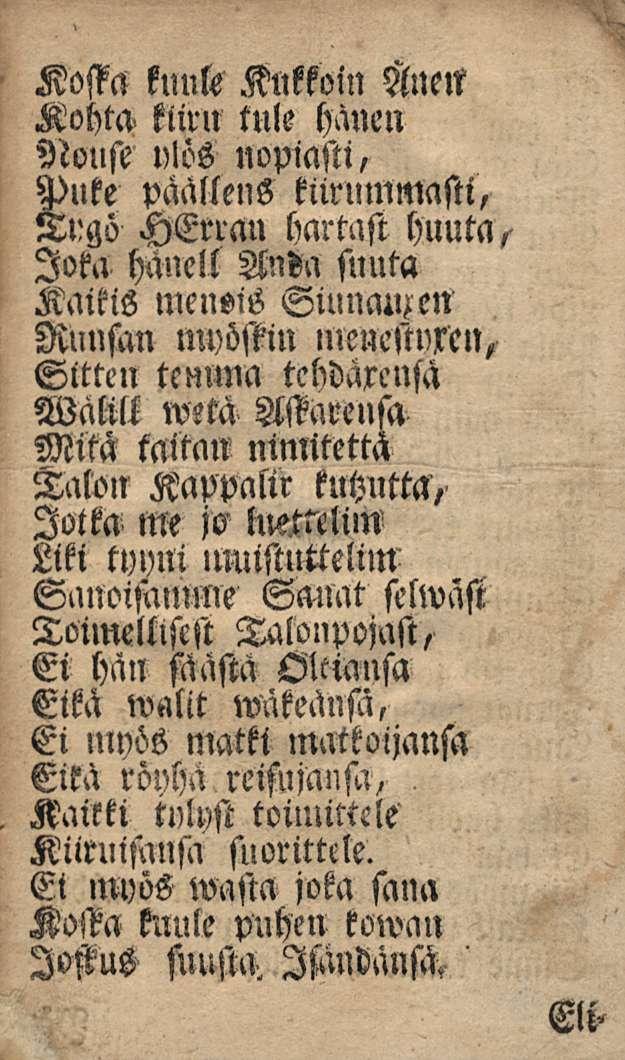 Koska kuule Kukkoin Änen
Kohta kiiru tule hänen
Nouse ylös nopiasti,
Puke päällens kiirummasti,
Tygö HErran hartast huuta,
Joka hänell Anda suuta
Kaikis menois Siunauxen
Runsan myöskin menestyxen,
Sitten temma tehdäxensä
Wälill wetä Askarensa
Mitä taitan nimitettä
Talon Kappalit kutzutta,
Jotka me jo luettelim
Liki tyyni muistuttelim
Sanoisamme Sanat selwäst
Toimellisest Talonpojast,
Ei hän säästä Olkiansa
Eikä walit wäkeänsä,
Ei myös matki matkoijansa
Eikä röyhä reisujansa,
Kaikki tylyst toimittele
Kiiruisansa suorittele.
Ei myös wasta joka sana
Koska kuule puhen kowan
Joskus suusta Isändänsä.
Eli-